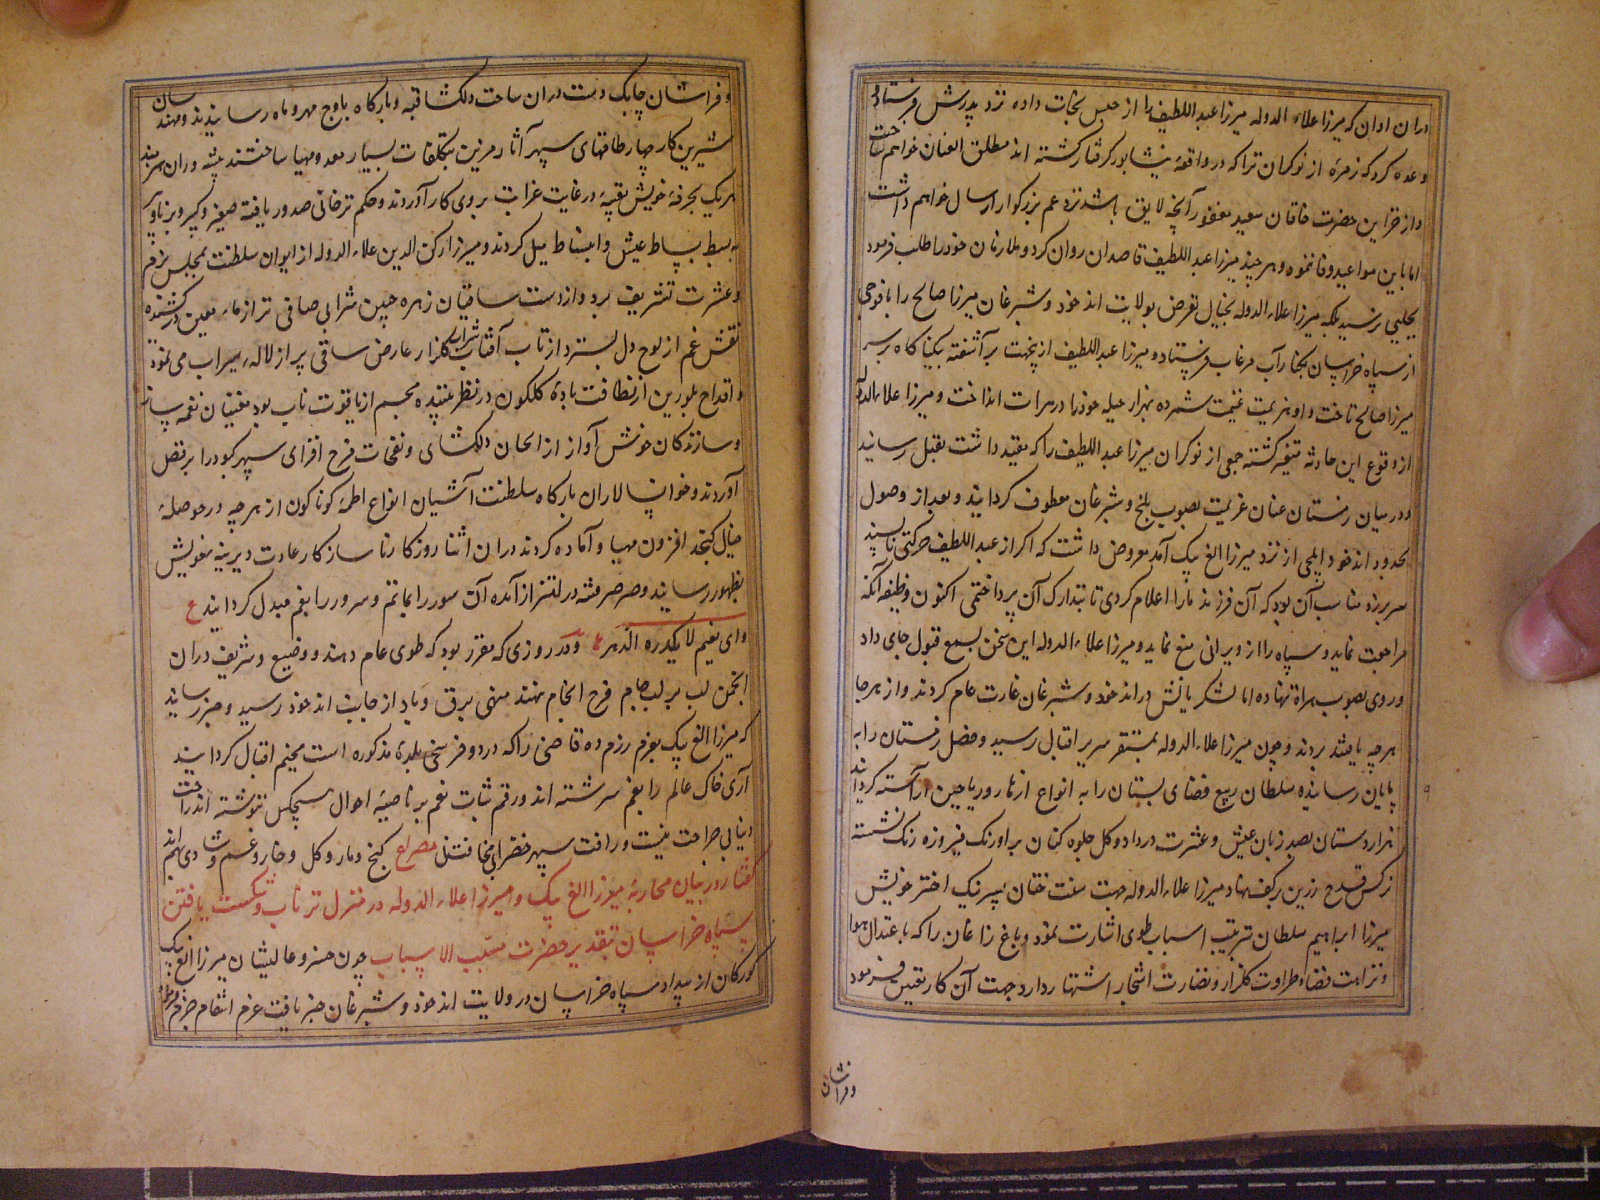 دران اوان که میرزا علاء الدوله میرزا عبد اللطیف را از حبس نجات داده نزد پدرش فرستاد
وعده کرد که زمرهٔ از نوکران ترا که در واقعهٔ نیشابور گرفتار گشته اند مطلق العنان خواهم ساخت
و از خزاین حضرت خاقان سعید مغفور آنچه لایق باشد نزد عم بزرکوار ارسال خواهم داشت
اما باین مواعید وفا ننموه و هر چند میرزا عبد اللطیف قاصدان روان کرد و ملازمان خود را طلب فرمود
بجایی نرسید بلکه میرزا علاء الدوله بخیال تعرض بولایت اند خود و شبرغان میرزا صالح را با فوجی
از سپاه خراسان بکنار آب مرغاب فرستاد و میرزا عبد اللطیف ازینجهت برآشفته بیکناکاه بر سر
میرزا صالح تاخت و او هزیمت غنیمت شمرده بهزار حیله خود را در هرات انداخت و میرزا علاء الدوله
از وقوع این حادثه متغیر کشته جمعی از نوکران میرزا عبد اللطیف را که مقید داشت بقتل رسانید
و در میان زمستان عنان عزیمت بصوب بلخ و شبرغان معطوف کردانید و بعد از وصول
بحدود اند خود ایلچی از نزد میرزا الغ بیک آمد معروض داشت که اکر از عبد اللطیف حرکتی ناپسند
سر برزد مناسب آن بود که آن فرزند ما را اعلام کردی تا بتدارک آن پرداختمی اکنون وظیفه آنکه
مراجعت نماید و سپاه را از ویرانی منع نماید و میرزا علاء الدوله این سخن بسمع قبول جای داد
و روی بصوب هراة نهاده اما لشکریانش در اند خود و شبرغان غارت عام کردند و از هر جا
هر چه یافتند بردند و چون میرزا علاء الدوله بمستقر سریر اقبال رسید و فصل زمستان را به
پایان رسانیده سلطان ربیع فضای بستان را به انواع ازهار و ریاحین آراسته کردانید
هزار دستان بصد زبان عیش و عشرت در داد و کل جلوه کنان بر اورنک فیروزه رنک نشسته
نرکس قدح زرین بر کف نهاد میرزا علاء الدوله جهت سنت ختان پسر نیک اختر خویش
میرزا ابراهیم سلطان بترتیب اسباب طوی اشارت نمود و باغ زاغان را که باعتدال هوا
و نزاهت فضا و طراوت کلزار و نضارت اشجار اشتهار دارد جهت آن کار تعین فرمود
و فراشان
و فراشان چابک دست دران ساحت دلکشا قبه و بارکاه باوج مهر و ماه رسانیدند و مهندسان
شیرین کار چهار طاقهای سپهر آثار مزین بتکلفات بسیار معد و مهیا ساختند پیشه وران هنرمند
هر یک بحرفهٔ خویش تعبیهٔ در غایت غرابت بروی کار آوردند و حکم ترخانی صدور یافته صغیر و کبیر و برنا و پیر
به بسط بساط عیش و انبساط میل کردند و میرزا رکن الدین علاء الدوله از ایوان سلطنت بمجلس بزم
و عشرت تشریف برد و از دست ساقیان زهره جبین شرابی صافی تر از ماء معین درکشیده
نقش غم از لوح دل بسترد از تاب آفتاب شراب کلزار عارض ساقی پر از لاله سیراب می نمود
و اقداح بلورین از لطافت بادهٔ کلکون در نظر بیننده مجسم از یاقوت ناب بود مغنیان نغمه ساز
و سازندکان خوش آواز از الحان دلکشای و نغمات فرح افزای سپهر کبود را برقص
آوردند و خوانسالاران بارکاه سلطنت آشیان انواع اطمعهٔ کوناکون از هر چه در حوصلهٔ
خیال کنجد افزون مهیا و آماده کردند دران اثنا روزکار ناسازکار عادت دیرینهٔ خویش
بظهور رسانید و صرصر فتنه در اهتزاز آمده آن سور را بماتم و سرور را بغم مبدل کردانید ع
وای نعیم لا یکدره الدهر و در روزی که مقرر بود که طوی عام دهند و وضیع و شریف دران
انجمن لب بر لب جام فرح انجام نهند منهی برق و باد از جانب اند خود رسید و خبر رسانید
که میرزا الغ بیک بعزم رزم ده قاضی را که در دو فرسخی بلدهٔ مذکوره است مخیم اقبال کردانید
آری خاک عالم را بغم سرشته اند و رقم ثبات نعم بر ناصیهٔ احوال هیچکس ننوشته اند راحت
دنیا بی جراحت نیست و رافت سپهر خضرا بی مخافت نی مصراع کنج و مار و کل و خار و غم و شادی بهم اند
کفتار در بیان محاربهٔ میرزا الغ بیک و میرزا علاء الدوله در منزل ترناب و شکست یافتن
سپاه خراسان بتقدیر حضرت مسبب الاسباب چون خسرو عالیشان میرزا الغ بیک
کورکان از بیداد سپاه خراسان در ولایت اند خود و شبرغان خبر یافت عزم انتقام جزم فرموده